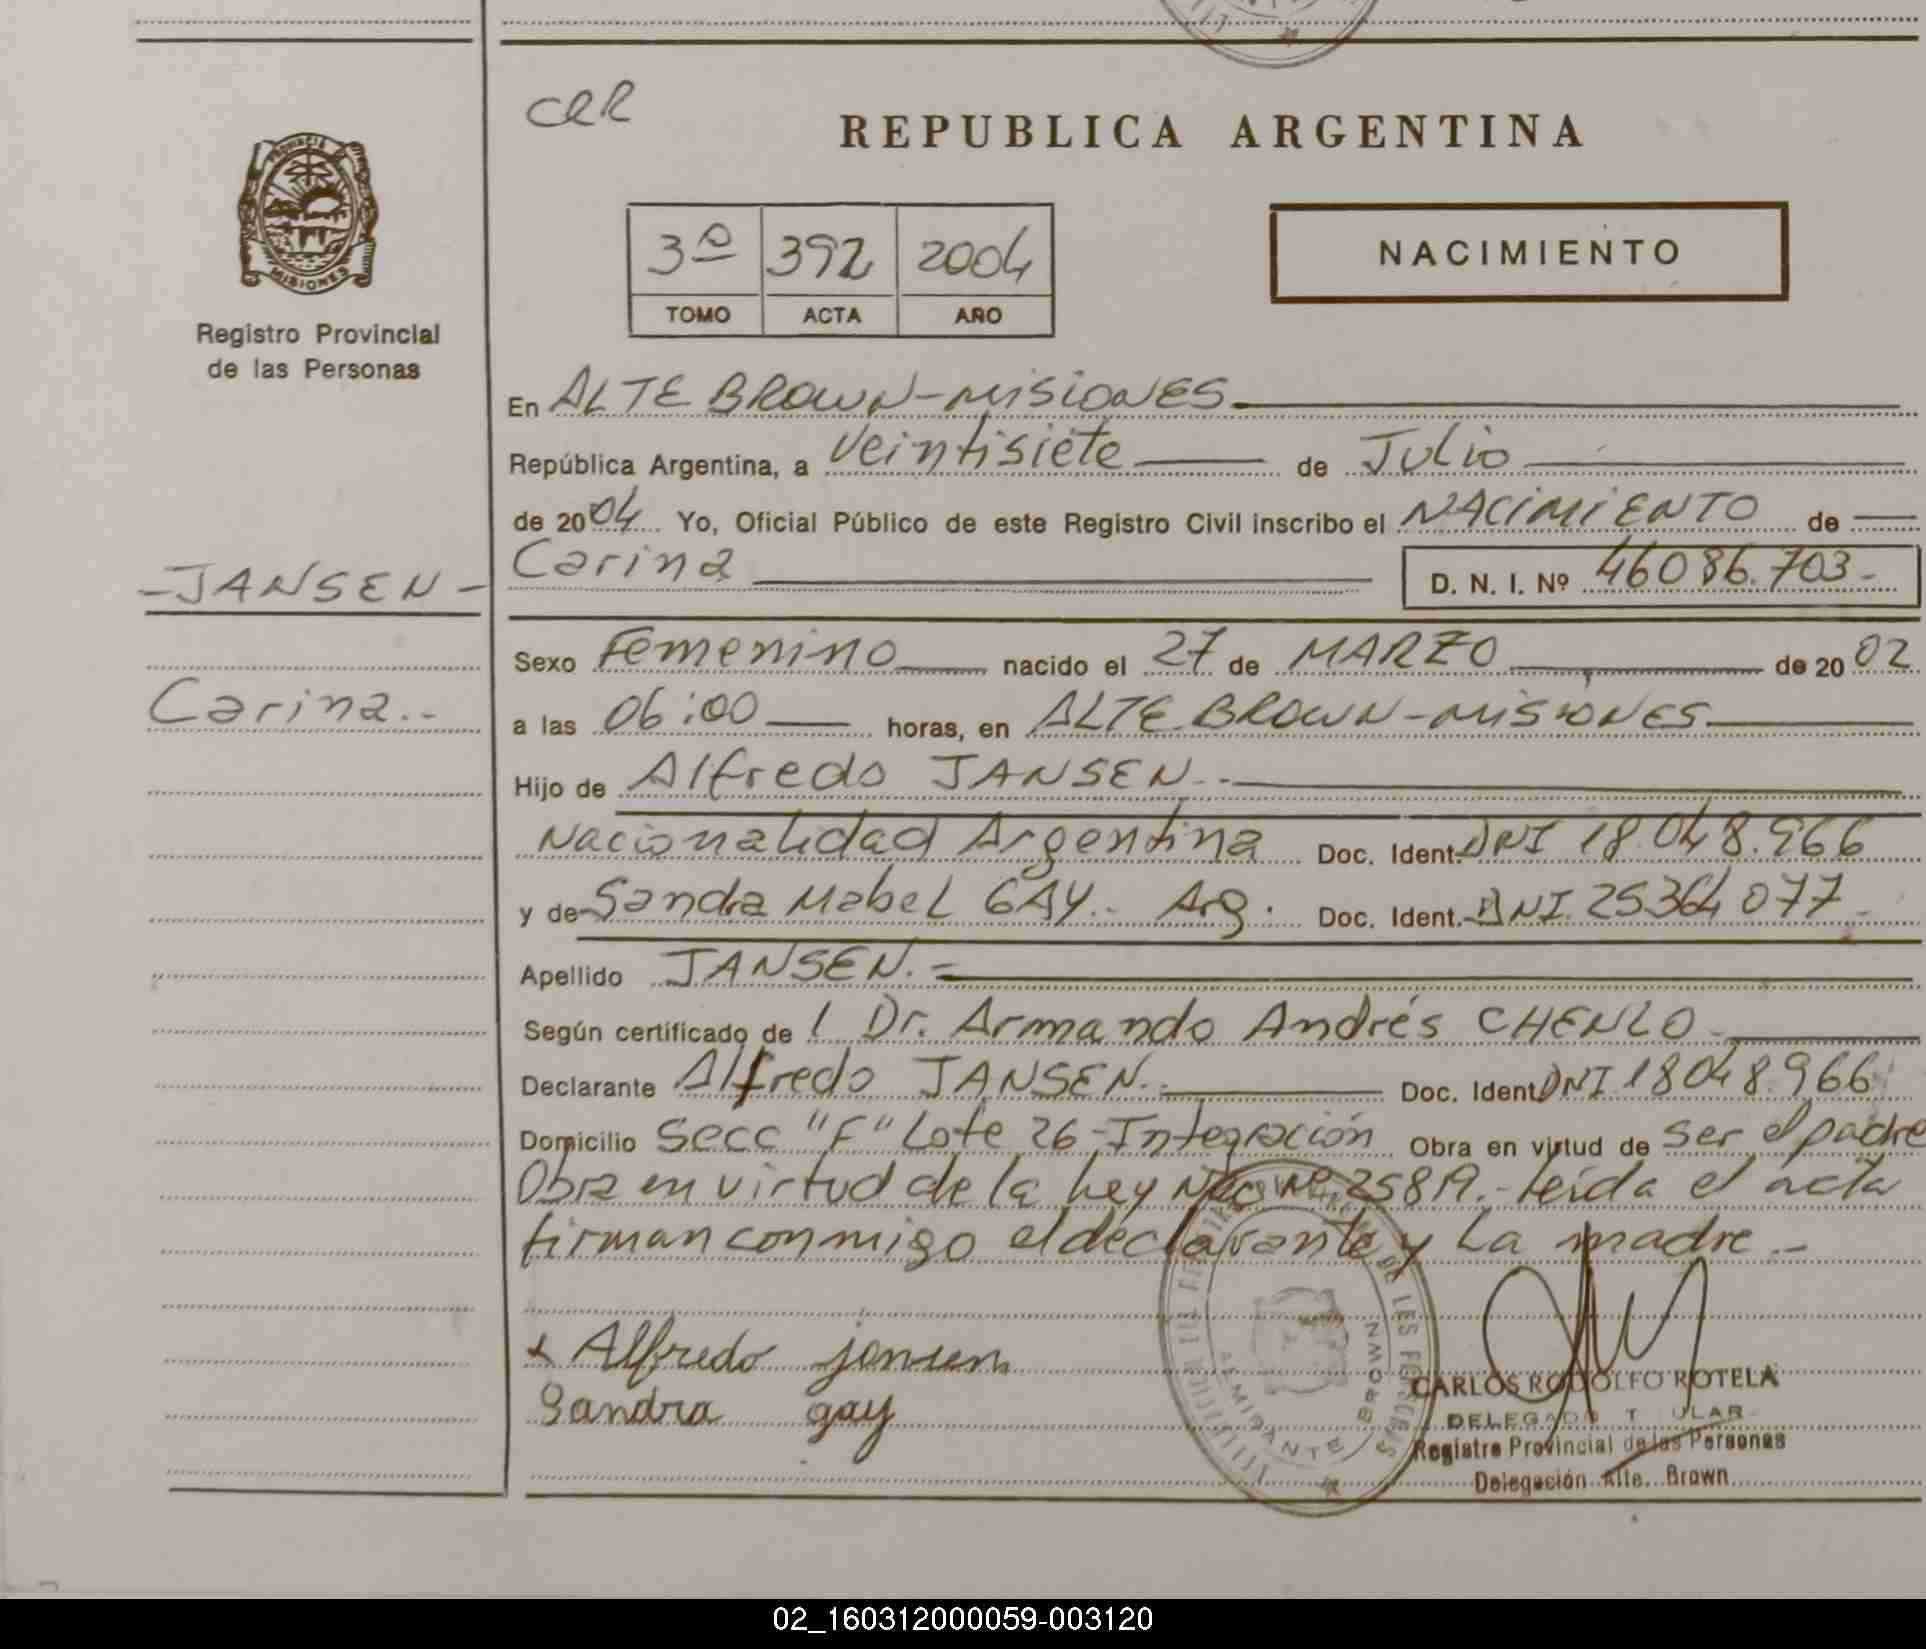 CRR
REPUBLICA ARGENTINA
PROVINCIA DE
MISIONES
Registro Provincial
de las Personas
3º 392 2004
TOMO ACTA AÑO
NACIMIENTO
En ALTE BROWN-MISIONES
República Argentina, a Veintisiete de Julio
de 2004 Yo, Oficial Público de este Registro Civil inscribo el NACIMIENTO de
Carina D. N. I. Nº 46086.703-
-JANSEN-
Sexo Femenino nacido el 27 de MARZO de 2002
Carina..-
a las 06:00 horas, en ALTE BROWN-MISIONES
Hijo de Alfredo JANSEN.-
Nacionalidad Argentina Doc. Ident. DNI 18.048.966
y de Sandra Mabel GAY.. Arg. Doc. Ident. DNI. 25364077-
Apellido JANSEN.-
Según certificado de l Dr. Armando Andrés CHENLO-
Declarante Alfredo JANSEN.. Doc. Ident. DNI 18048.966
Domicilio Secc "F" Lote 26-Integración Obra en virtud de ser el padre
Obra en virtud de la Ley Nac Nº 25819.- Leída el acta
firman conmigo el declarante y La madre.-
x Alfredo jansen
Sandra gay
ALMIRANTE BROWN
CARLOS RODOLFO ROTELA
DELEGADO TITULAR
Registro Provincial de las Personas
Delegación Alte. Brown
02_160312000059-003120